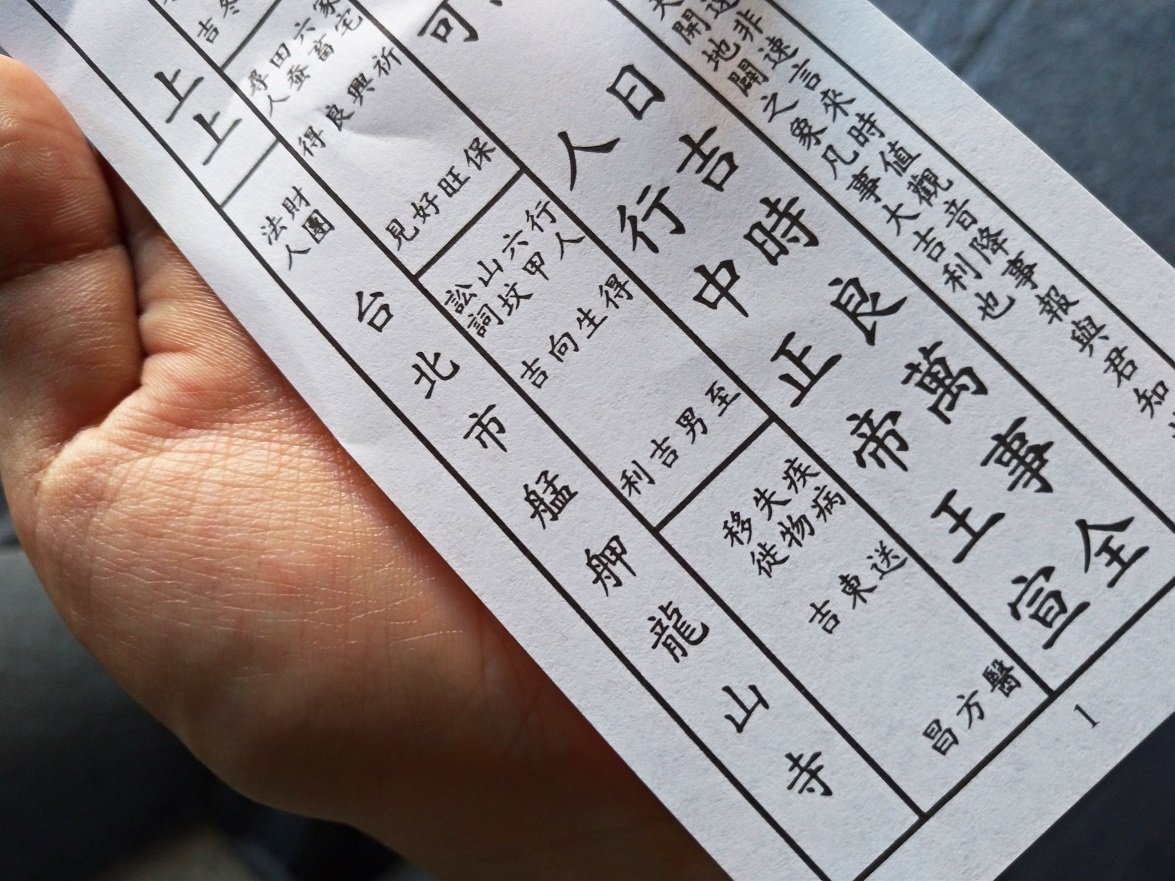 速非速言來時值觀音降事報與君知
開地闢之象凡事大吉利也
日吉時良萬事全
可
人行中正帝王宣
家宅 祈保
六畜 興旺
田蚕 良好
尋人 得見
行人 得至
六甲 生男
山坟 向吉
訟詞 吉利
疾病 送醫
失物 東方
移徙 吉昌
冬
吉
上上
財團
法人
台北市艋舺龍山寺
1